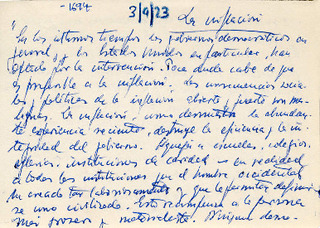 -1694
3/9/23
La inflación
"En los últimos tiempos los gobiernos democráticos en
general, y los Estados Unidos en particular, han
optado por la intervención. Poca duda cabe de que
es preferible a la inflación; las consecuencias
políticas de la inflación abierta y fuerte son
La inflación, como demuestra la abundan-
te experiencia reciente, destruye la eficiencia y la in-
tegridad del gobierno. a escuelas, colegios,
iglesias, instituciones de caridad — en realidad
a todas las instituciones que el hombre occidental
ha creado tan laboriosamente y que le permiten definir-
se como civilizado. Esto recompensa a la persona
más grosera y